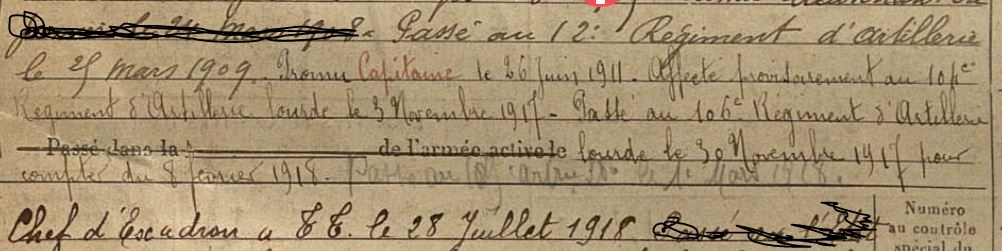 Passé au 12e Régiment d'artillerie
le 25 mars 1909. Promu Capitaine le 26 Juin 1911. Affecté provisoirement au 104e
Régiment d'Artillerie lourde le 3 Novembre 1917 - Passé au 106e Régiment d'Artillerie
Passé dans la de l'armée active le lourde le 30 Novembre 1917 pour
compter du 8 février 1918. Mars 1918.
Chef d'Escadron a T.T. le 28 Juillet 1918
Numéro
au contrôle
spécial du